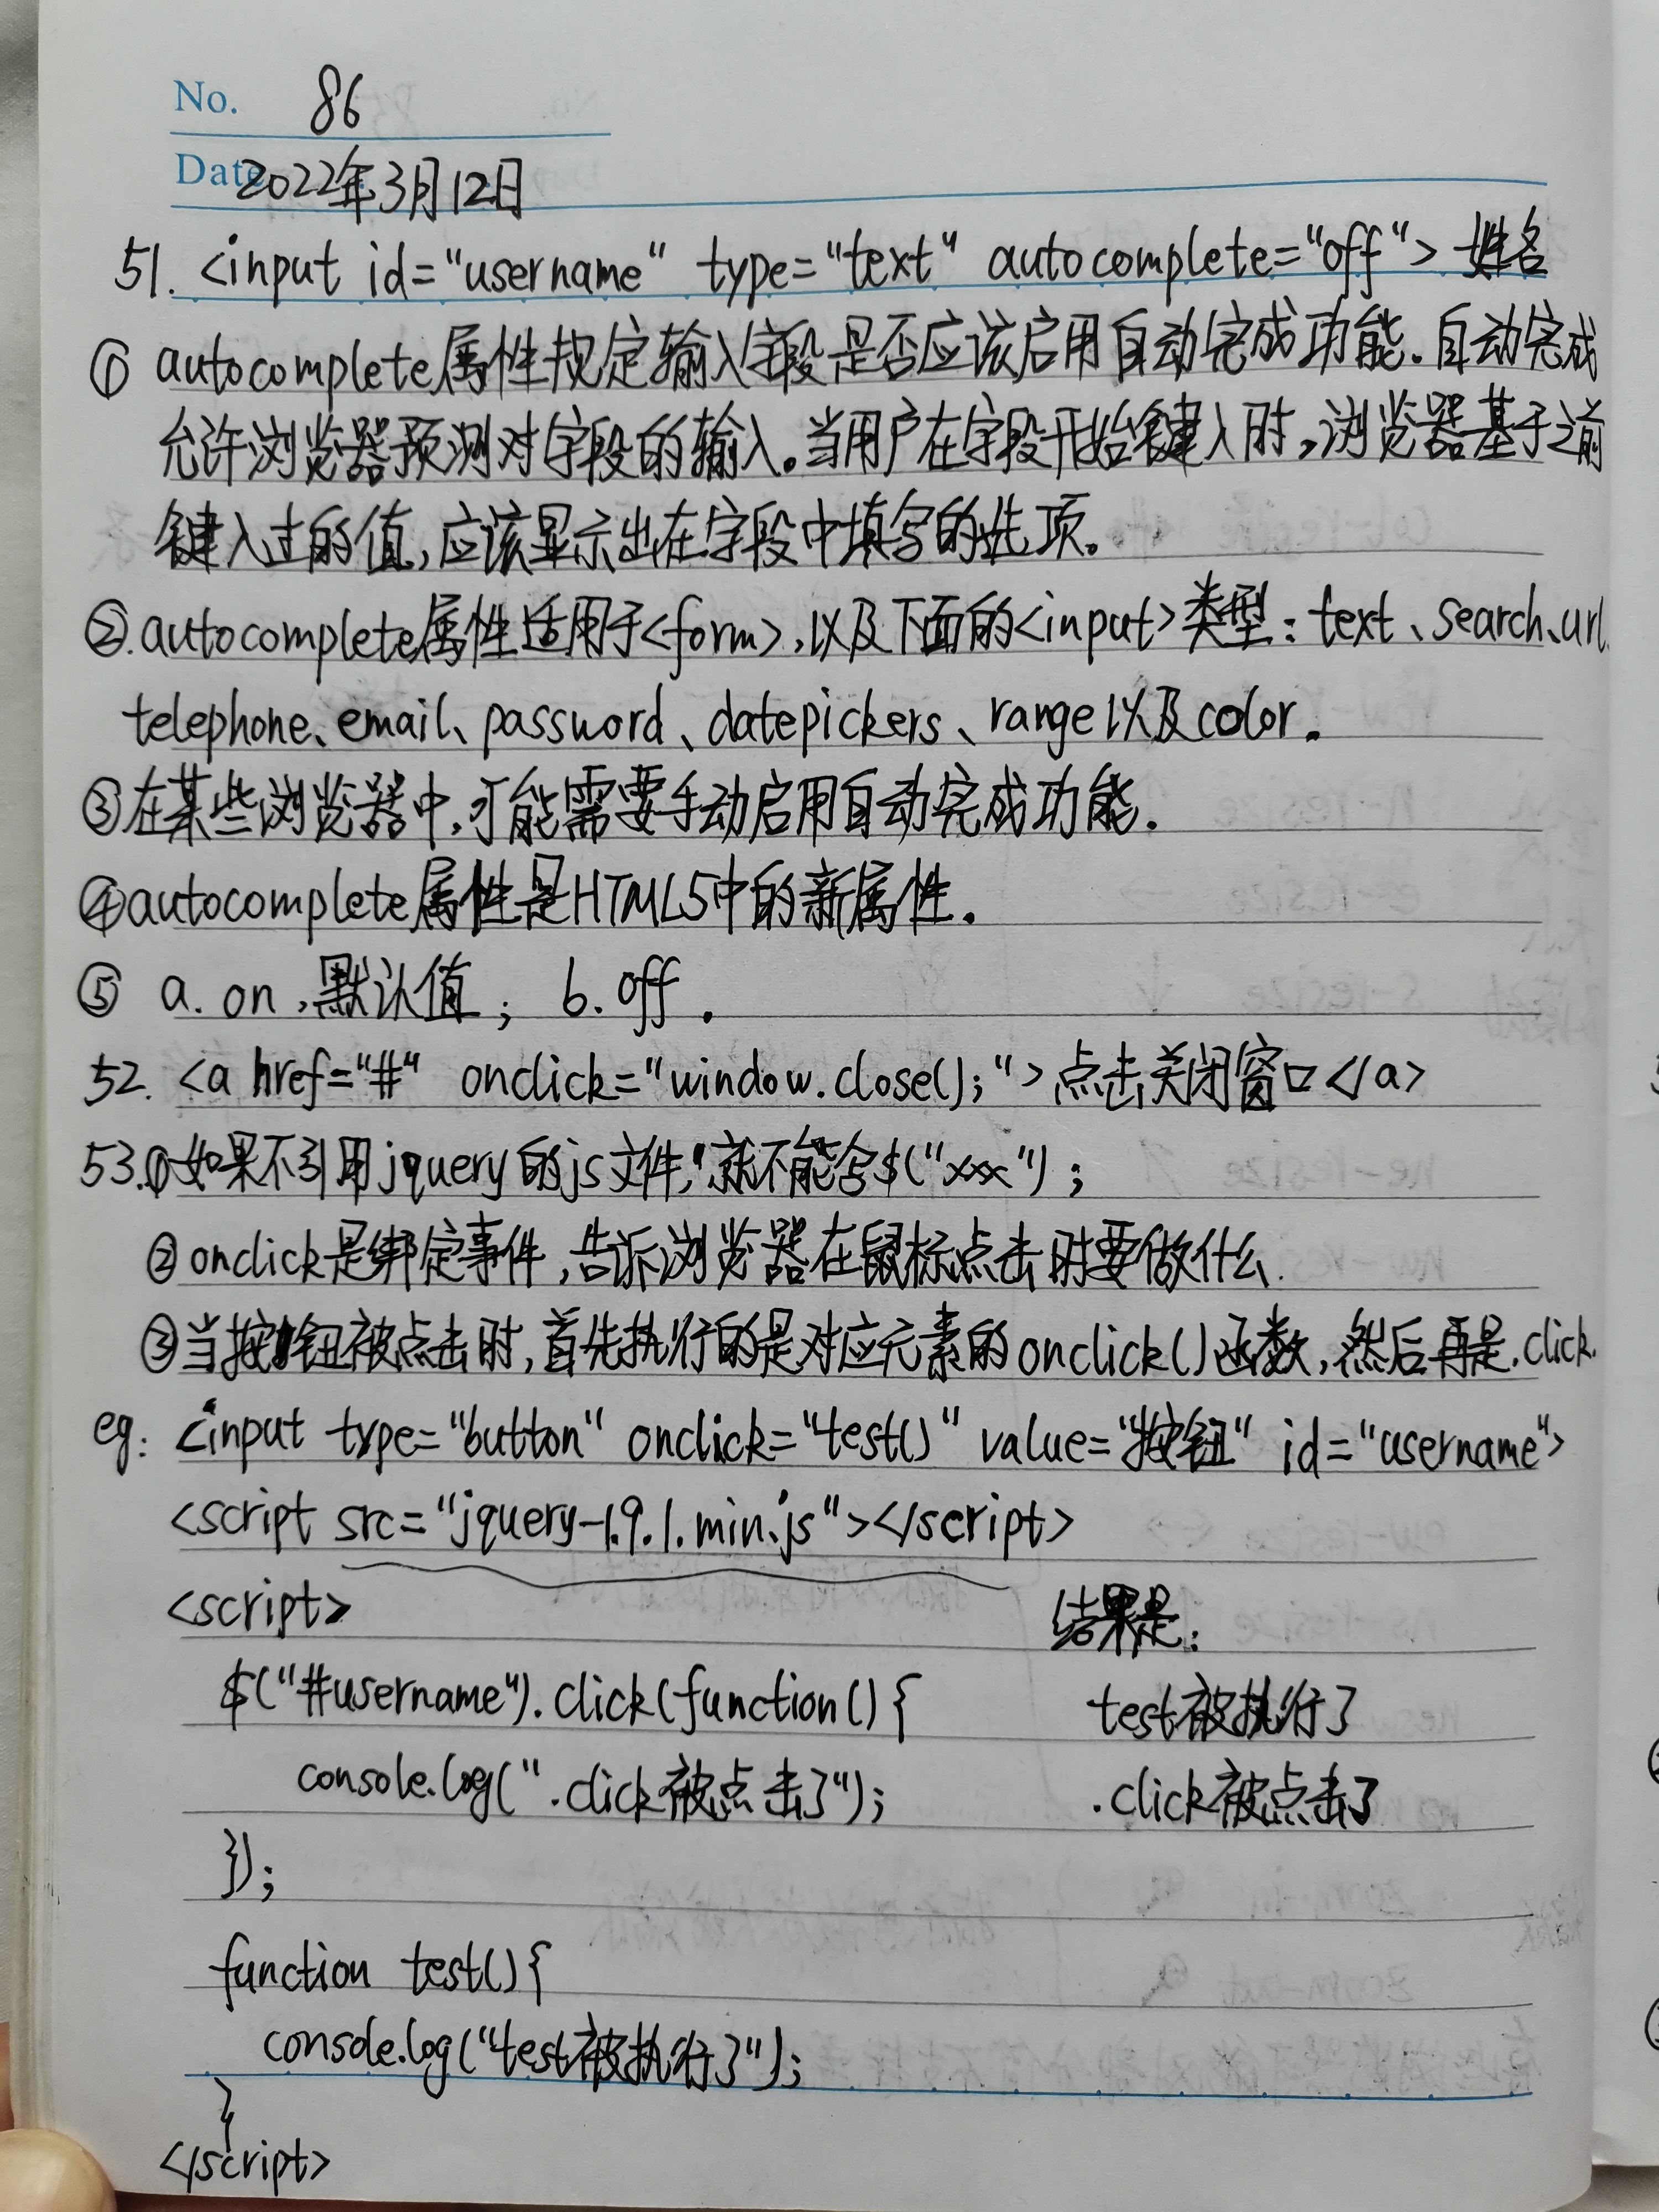 No. 86
Date 2022年3月12日
51. <input id="username" type="text" autocomplete="off"> 姓名
① autocomplete属性规定输入字段是否应该启用自动完成功能.自动完成
允许浏览器预测对字段的输入。当用户在字段开始键入时,浏览器基于之前
键入过的值,应该显示出在字段中填写的选项。
②.autocomplete属性适用于<form>,以及下面的<input>类型:text、search、url、
telephone、email、password、datepickers、range以及color。
③在某些浏览器中,可能需要手动启用自动完成功能.
④autocomplete属性是HTML5中的新属性.
⑤ a. on,默认值; b. off.
52. <a href="#" onclick="window.close();">点击关闭窗口</a>
53.①如果不引用jquery的js文件,就不能含$("xxx");
②onclick是绑定事件,告诉浏览器在鼠标点击时要做什么.
③当按钮被点击时,首先执行的是对应元素的onclick()函数,然后再是.click.
eg: <input type="button" onclick="test()" value="按钮" id="username">
<script src="jquery-1.9.1.min.js"></script>
<script> 结果是:
$("#username").click(function(){ test被执行了
console.log(".click被点击了"); .click被点击了
});
function test(){
console.log("test被执行了");
}
</script>